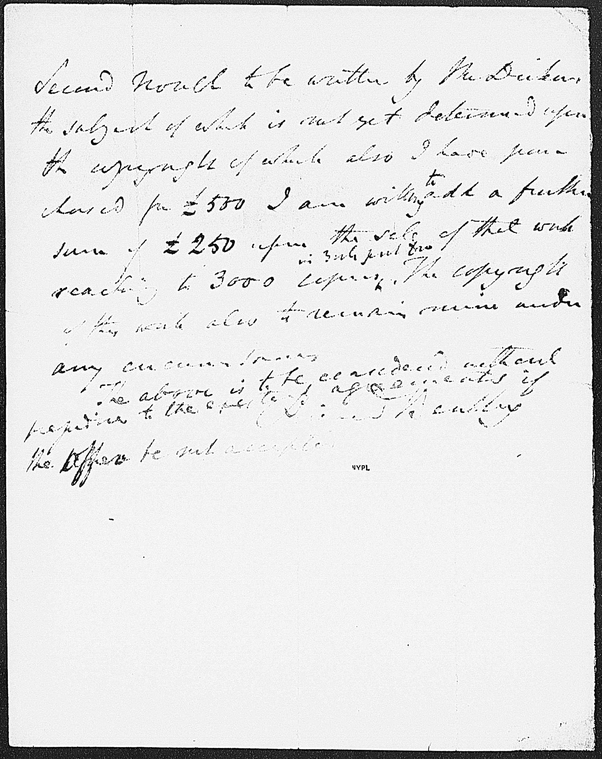 Second Novel to be written by Mr Dickens
the subject of which is not yet determined upon
the copyright of which also I have pur-
chased for £500 I am willing to add a further
sum of £250 upon the sale of that work
in 3 vols post 8vo
reaching to 3000 copies. The copyright
of this work also to remain mine under
any circumstances
The above is to be considered without
prejudice to the existing agreements if
Bentley
the offer be not accepted
NYPL